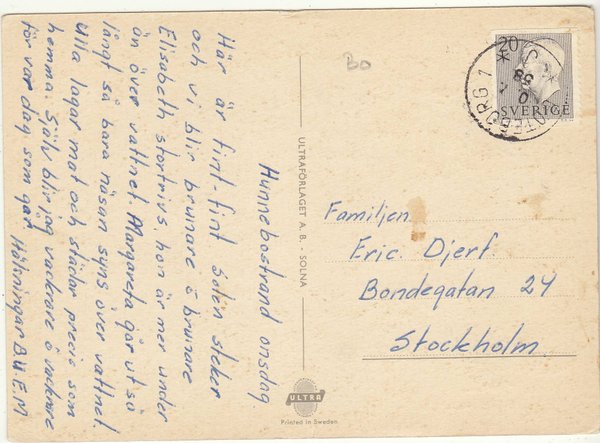 Hunnebostrand onsdag.
Här är fint-fint Solen steker
och vi blir brunare ö brunare
Elisabeth stortrivs, hon är mer under
än över vattnet. Margareta går ut så
långt så bara näsan syns över vattnet.
Ulla lagar mat och städar precis som
hemma. Själv blir jag vackrare ö vackrare
för var dag som går.
Hälsningar B.U.E.M
BO
ULTRAFÖRLAGET A. B. SOLNA
ULTRA
Printed in Sweden
20
SVERIGE
GÖTEBORG 1
Familjen
Eric. Djerf.
Bondegatan 24
Stockholm